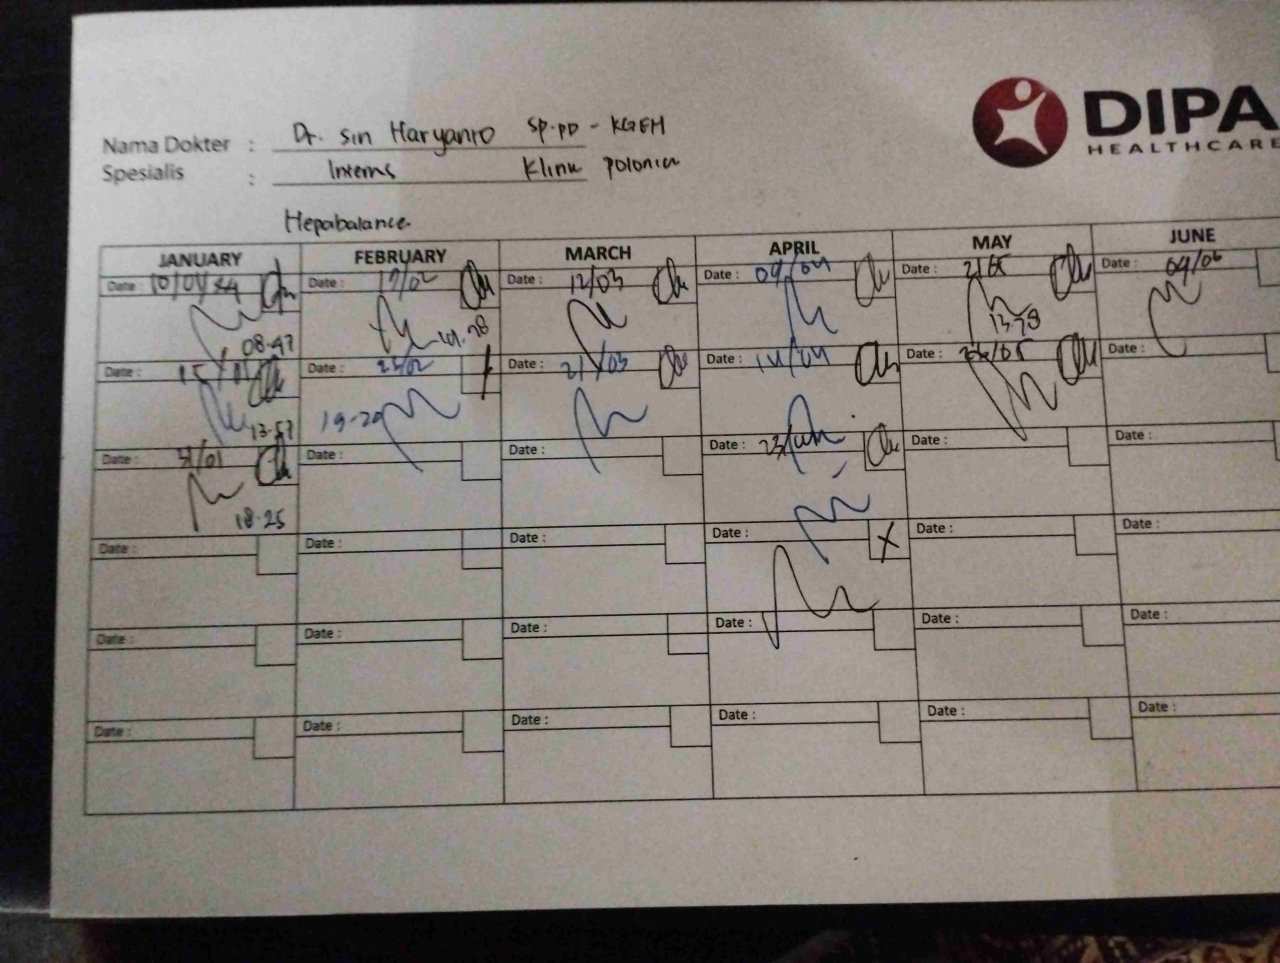 DIPA
HEALTHCARE
Nama Dokter : Dr. Sin Haryanto Sp.PD - KGEH
Spesialis : Interns Klinik Polonia
Hepabalance
JANUARY FEBRUARY MARCH APRIL MAY JUNE
Date : Date : 17/02 Date : 12/03 Date : 04/04 Date : Date : 04/06
08.47
13.28
Date : Date : Date : 21/03 Date : 14/04 Date : Date :
13.57 19-20
Date : 31/01 Date : Date : Date : Date : Date :
18.25
Date : Date : Date : Date : Date : Date :
Date : Date : Date : Date : Date : Date :
Date : Date : Date : Date : Date : Date :